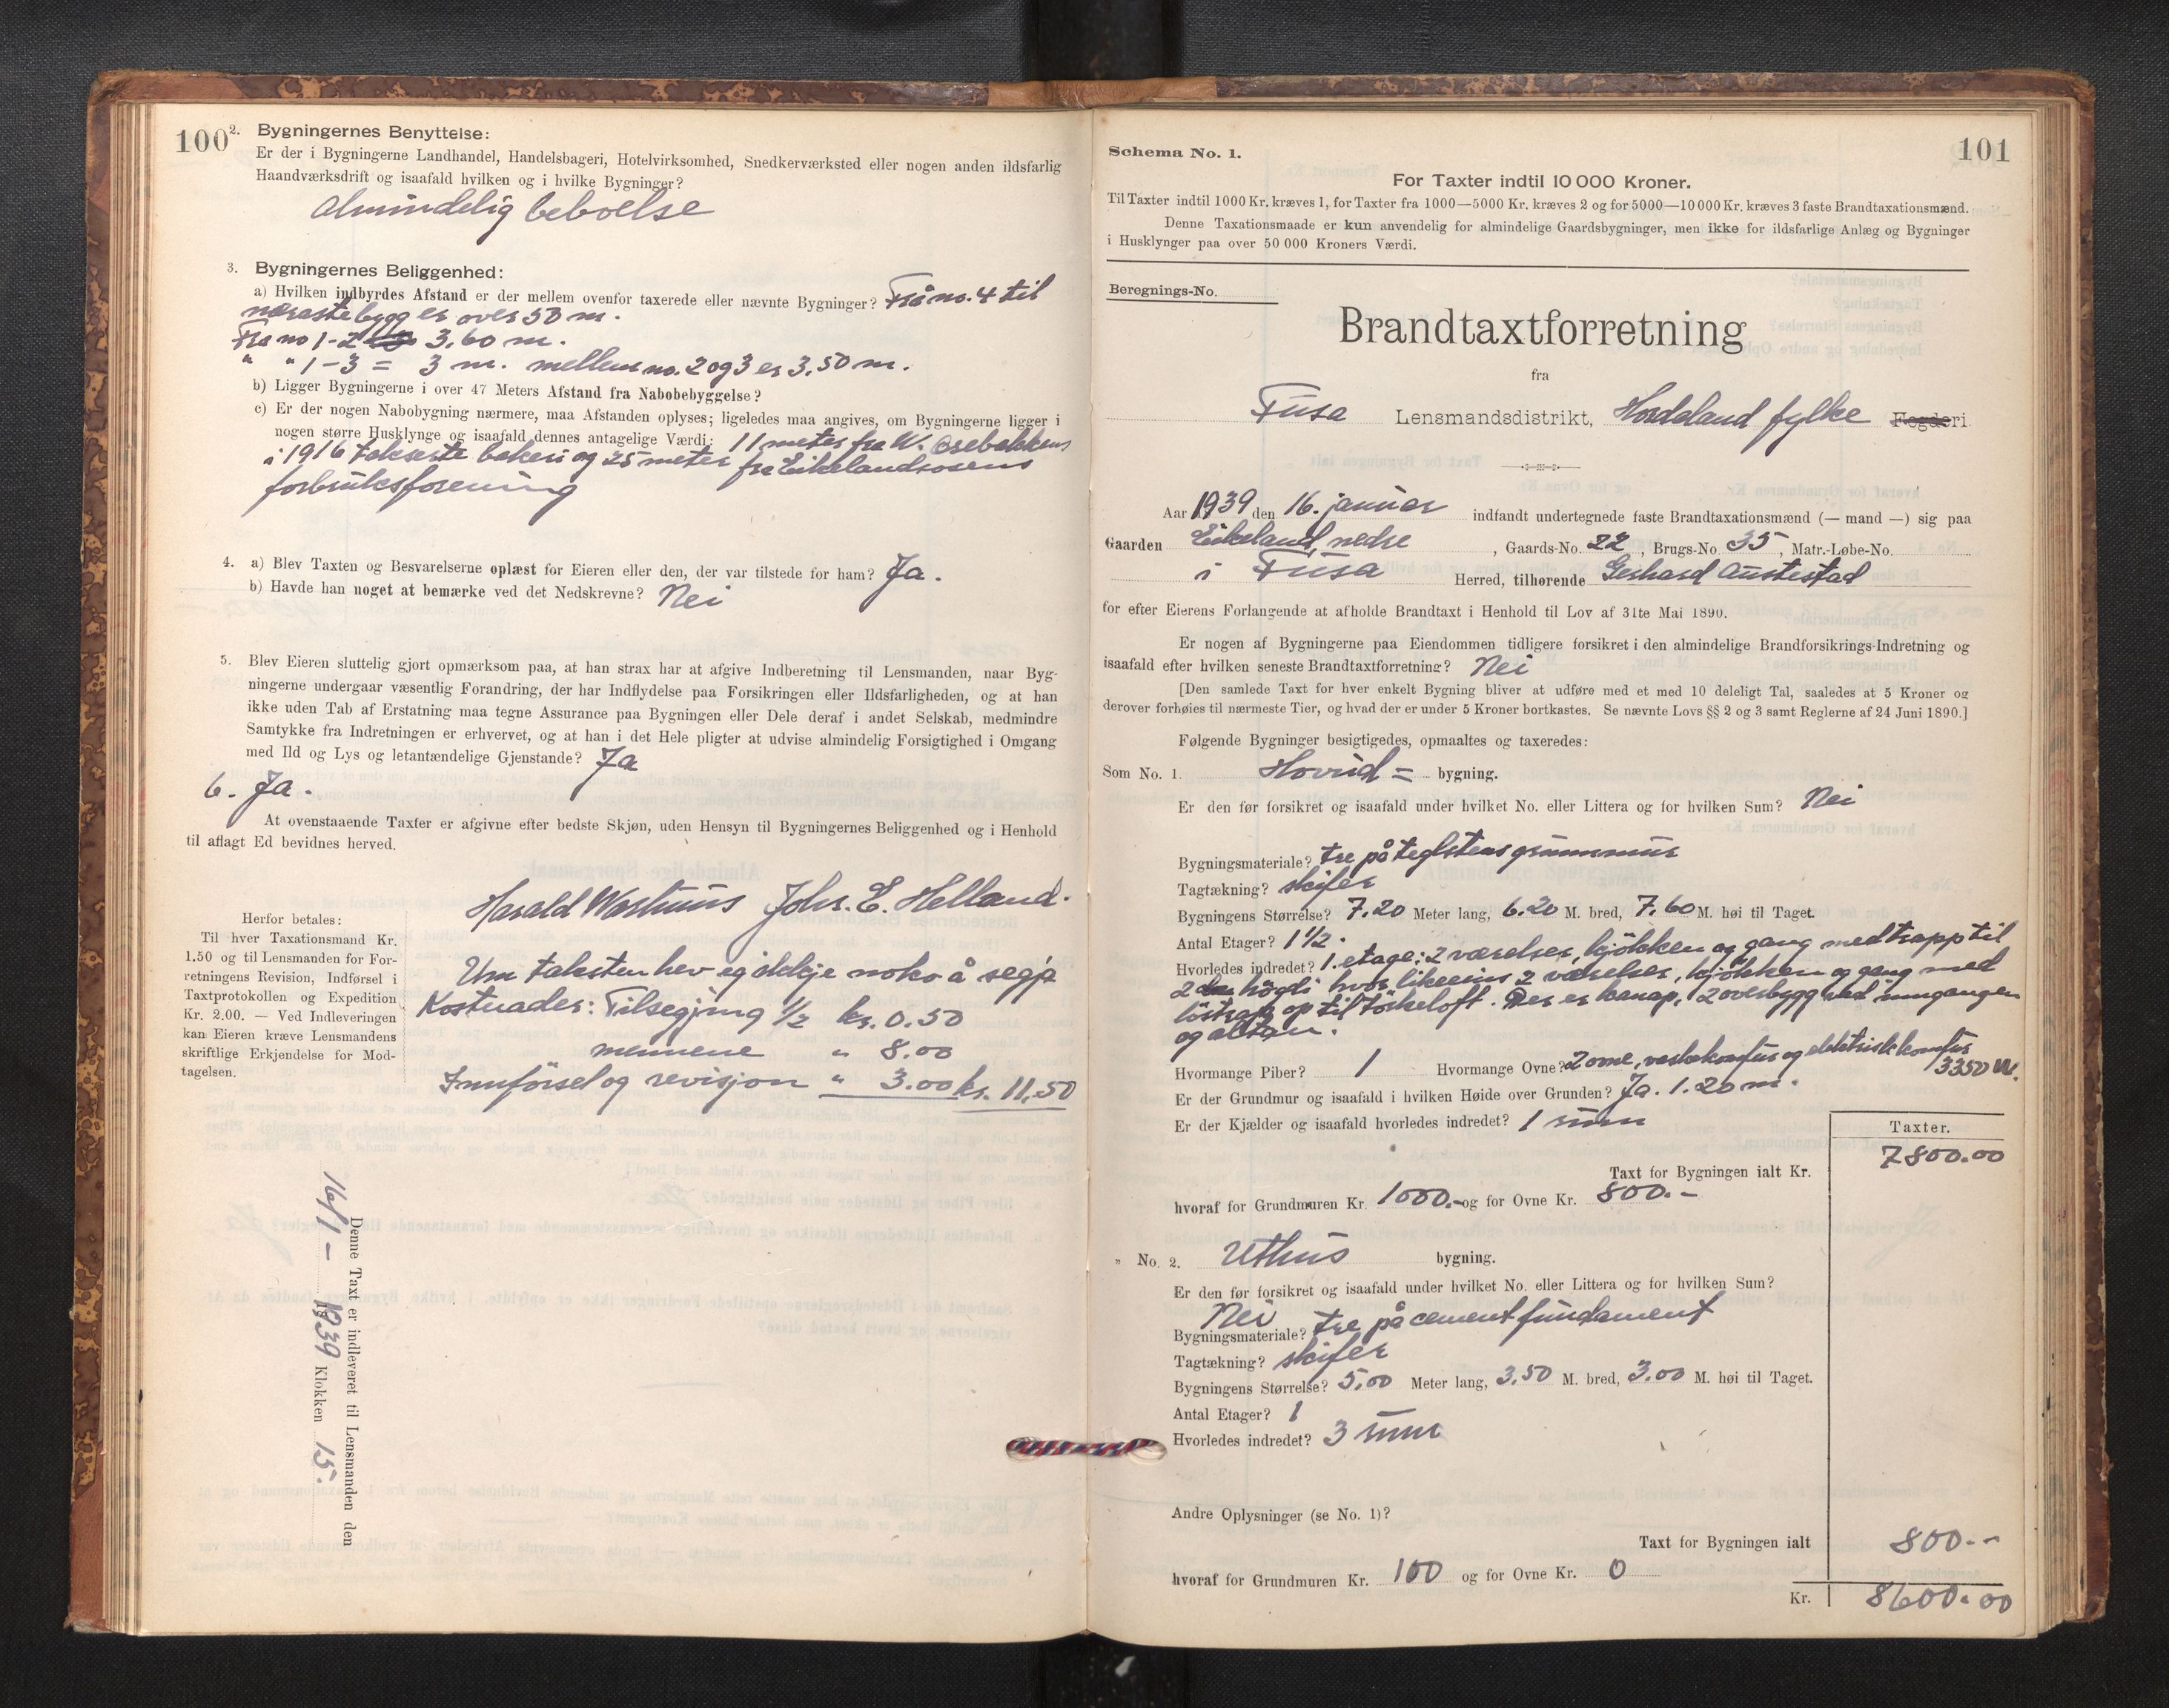 100
2. Bygningernes Benyttelse:
Er der i Bygningerne Landhandel, Handelsbageri, Hotelvirksomhed, Snedkerværksted eller nogen anden ildsfarlig
Haandværksdrift og isaafald hvilken og i hvilke Bygninger?
Almindelig beboelse
3. Bygningernes Beliggenhed:
a) Hvilken indbyrdes Afstand er der mellem ovenfor taxerede eller nævnte Bygninger? Frå no. 4 til
næraste bygg er over 50 m.
Fra no 1-2 3.60 m.
" " 1-3 = 3 m. mellem no. 2 og 3 er 3.50 m.
b) Ligger Bygningerne i over 47 Meters Afstand fra Nabobebyggelse?
c) Er der nogen Nabobygning nærmere, maa Afstanden oplyses; ligeledes maa angives, om Bygningerne ligger i
nogen større Husklynge og isaafald dennes antagelige Værdi: 11 meter fra W. Osebakkens
i 1916 takserte bakeri og 25 meter fra Eikelandsosens
forbruksforening
4. a) Blev Taxten og Besvarelserne oplæst for Eieren eller den, der var tilstede for ham? Ja.
b) Havde han noget at bemærke ved det Nedskrevne? Nei
5. Blev Eieren sluttelig gjort opmærksom paa, at han strax har at afgive Indberetning til Lensmanden, naar Byg-
ningerne undergaar væsentlig Forandring, der har Indflydelse paa Forsikringen eller Ildsfarligheden, og at han
ikke uden Tab af Erstatning maa tegne Assurance paa Bygningen eller Dele deraf i andet Selskab, medmindre
Samtykke fra Indretningen er erhvervet, og at han i det Hele pligter at udvise almindelig Forsigtighed i Omgang
med Ild og Lys og letantændelige Gjenstande? Ja
6. Ja.
At ovenstaaende Taxter er afgivne efter bedste Skjøn, uden Hensyn til Bygningernes Beliggenhed og i Henhold
til aflagt Ed bevidnes herved.
Harald Johs. E. Helland.
Herfor betales:
Til hver Taxationsmand Kr.
1.50 og til Lensmanden for For-
retningens Revision, Indførsel i
Taxtprotokollen og Expedition
Kr. 2.00. — Ved Indleveringen
kan Eieren kræve Lensmandens
skriftlige Erkjendelse for Mod-
tagelsen.
Um taksten hev eg ikkje noko å segja
Kostnader: Tilsegjing 1/2 kr. 0.50
mennene " 8.00
Innförsel og revisjon " 3.00 kr. 11.50
Denne Taxt er indleveret til Lensmanden den
16/1 - 1939 Klokken 15.
101
Schema No. 1.
For Taxter indtil 10 000 Kroner.
Til Taxter indtil 1000 Kr. kræves 1, for Taxter fra 1000—5000 Kr. kræves 2 og for 5000—10000 Kr. kræves 3 faste Brandtaxationsmænd.
Denne Taxationsmaade er kun anvendelig for almindelige Gaardsbygninger, men ikke for ildsfarlige Anlæg og Bygninger
i Husklynger paa over 50 000 Kroners Værdi.
Beregnings-No.
Brandtaxtforretning
fra
Fusa Lensmandsdistrikt, Hordaland fylke Fogderi
Aar 1939 den 16. januar indfandt undertegnede faste Brandtaxationsmænd (— mand —) sig paa
Gaarden Eikeland, nedre, Gaards-No. 22, Brugs-No. 35, Matr.-Løbe-No.
i Fusa Herred, tilhørende Gerhard Austestad
for efter Eierens Forlangende at afholde Brandtaxt i Henhold til Lov af 31te Mai 1890.
Er nogen af Bygningerne paa Eiendommen tidligere forsikret i den almindelige Brandforsikrings-Indretning og
isaafald efter hvilken seneste Brandtaxtforretning? Nei
[Den samlede Taxt for hver enkelt Bygning bliver at udføre med et med 10 deleligt Tal, saaledes at 5 Kroner og
derover forhøies til nærmeste Tier, og hvad der er under 5 Kroner bortkastes. Se nævnte Lovs §§ 2 og 3 samt Reglerne af 24 Juni 1890.]
Følgende Bygninger besigtigedes, opmaaltes og taxeredes:
Som No. 1. Hovud= bygning.
Er den før forsikret og isaafald under hvilket No. eller Littera og for hvilken Sum? Nei
Bygningsmateriale? tre på teglstens grunnmur
Tagtækning? skifer
Bygningens Størrelse? 7.20 Meter lang, 6.20 M. bred, 7.60 M. høi til Taget.
Antal Etager? 1 1/2.
Hvorledes indredet? 1. etage: 2 værelser, kjökken og gang med trapp til
2 högdi hvor likeeins 2 værelser, kjökken og gang med
löstrapp op til törkeloft. Der er kanap, 2 overbygg ved inngangen
og altan.
Hvormange Piber? 1 Hvormange Ovne? 2 ovne, vaskekomfur og elektrisk komfur
3350 W.
Er der Grundmur og isaafald i hvilken Høide over Grunden? Ja. 1.20 m.
Er der Kjælder og isaafald hvorledes indredet? 1 rum
Taxter.
Taxt for Bygningen ialt Kr. 7800.00
hvoraf for Grundmuren Kr. 1000.- og for Ovne Kr. 800.-
" No. 2. Uthus bygning.
Er den før forsikret og isaafald under hvilket No. eller Littera og for hvilken Sum?
Nei
Bygningsmateriale? tre på cement fundament
Tagtækning? skifer
Bygningens Størrelse? 5.00 Meter lang, 3.50 M. bred, 3.00 M. høi til Taget.
Antal Etager? 1
Hvorledes indredet? 3 rum
Andre Oplysninger (se No. 1)?
Taxt for Bygningen ialt 800.-
hvoraf for Grundmuren Kr. 100 og for Ovne Kr. 0
Kr. 8600.00